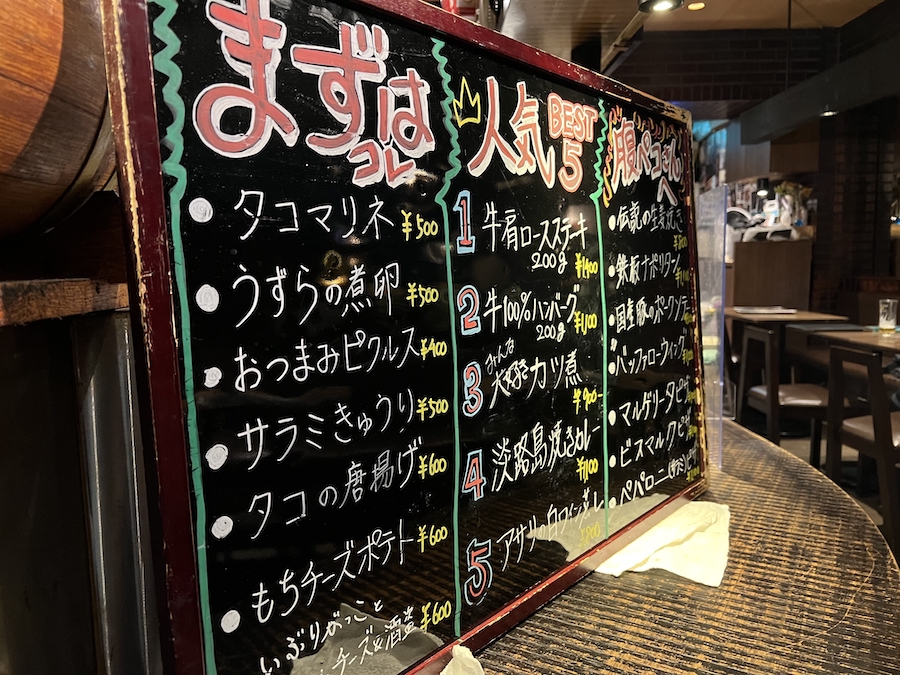 まずは
コレ
タコマリネ ¥500
うずらの煮卵 ¥500
おつまみピクルス ¥400
サラミきゅうり ¥500
タコの唐揚げ ¥600
もちチーズポテト ¥600
いぶりがっこと
チーズ&酒盗 ¥600
人気 BEST
5
1 牛肩ロースステーキ
200g ¥1,400
2 牛100%ハンバーグ
200g ¥1,100
3 みんな
大好きカツ煮
¥900-
4 淡路島焼きカレー
¥1,100
5 アサリの白ワイン蒸し
腹ペコさん
へ
伝説の生姜焼き
鉄板ナポリタン
国産豚のポークソテー
バッファローウィング
マルゲリータピザ
ビスマルクピ
ペペロー